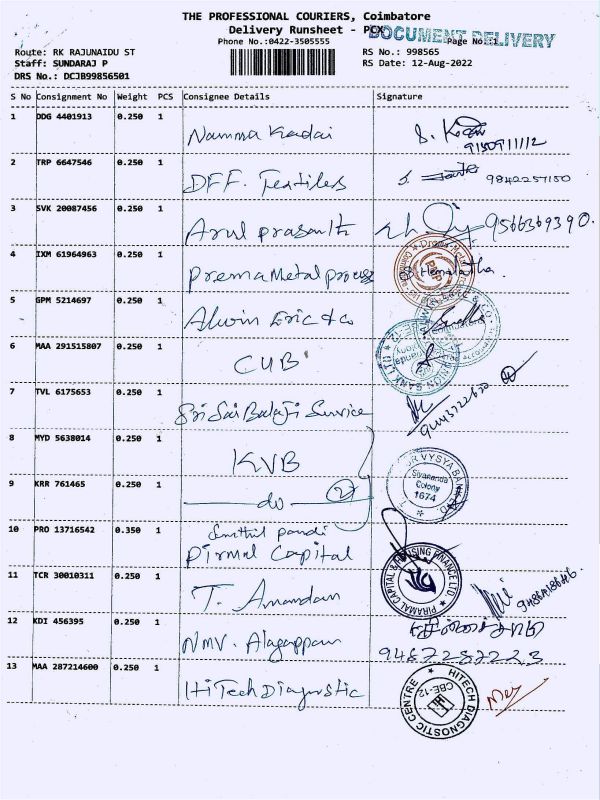 THE PROFESSIONAL COURIERS, Coimbatore
Delivery Runsheet - PCX
DOCUMENT DELIVERY
Phone No.:0422-3505555
Page No.:1
Route: RK RAJUNAIDU ST
RS No.: 998565
Staff: SUNDARAJ P
RS Date: 12-Aug-2022
DRS No.: DCJB99856501
S No Consignment No Weight PCS Consignee Details Signature
1 DDG 4401913 0.250 1 Namma Kadai
9150911112
2 TRP 6647546 0.250 1 DFF. Textiles 9842257150
3 SVK 20087456 0.250 1 Arul prasanth 9566369390.
4 IXM 61964963 0.250 1 Prema Metal process Hemalatha
5 GPM 5214697 0.250 1 Alwin Eric & co
6 MAA 291515807 0.250 1 CUB
7 TVL 6175653 0.250 1 Sri Sai Balaji Service
8 MYD 5638014 0.250 1 KVB
VYSYA BANK
Sivananda
Colony
1674
9 KRR 761465 0.250 1 do (2)
10 PRO 13716542 0.350 1 Senthil pandi
Pirmal Capital
PIRAMAL CAPITAL & HOUSING FINANCE LTD
11 TCR 30010311 0.250 1 T. Anandan
12 KDI 456395 0.250 1 NMV. Alagappan
9487287223
13 MAA 287214600 0.250 1 HiTech Diagnostic
HITECH DIAGNOSTIC CENTRE
CBE-12